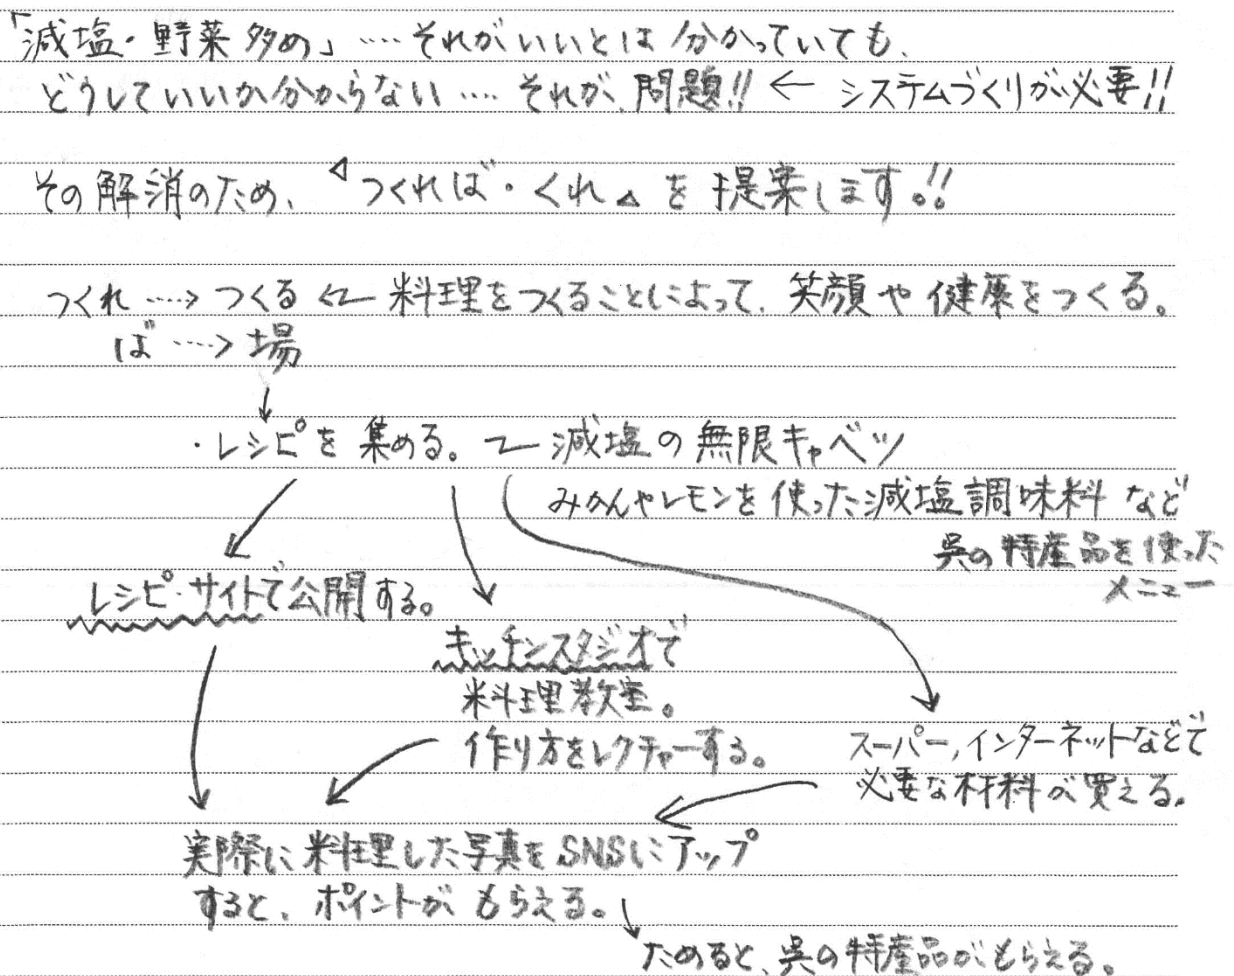 「減塩・野菜多め」…‥それがいいとは分かっていても、
どうしていいか分からない…‥それが、問題!! ← システムづくりが必要!!
その解消のため、『つくれば・くれ』を提案します!!
つくれ …‥> つくる ← 料理をつくることによって、笑顔や健康をつくる。
ば …‥> 場
↓
・レシピを集める。 ← 減塩の無限キャベツ
みかんやレモンを使った減塩調味料 など
呉の特産品を使った
メニュー
レシピ・サイトで公開する。
キッチンスタジオで
料理教室。
作り方をレクチャーする。
スーパー,インターネットなどで
必要な材料が買える。
実際に料理した写真をSNSにアップ
すると、ポイントがもらえる。
ためると、呉の特産品がもらえる。